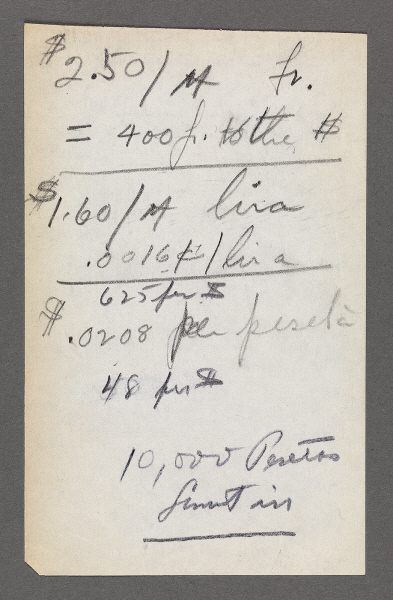 $2.50/M fr.
= 400 fr. to the $
$1.60/M lira
.0016¢/lira
625 per $
$.0208 per peseta
48 per $
10,000 Pesetas
limit in